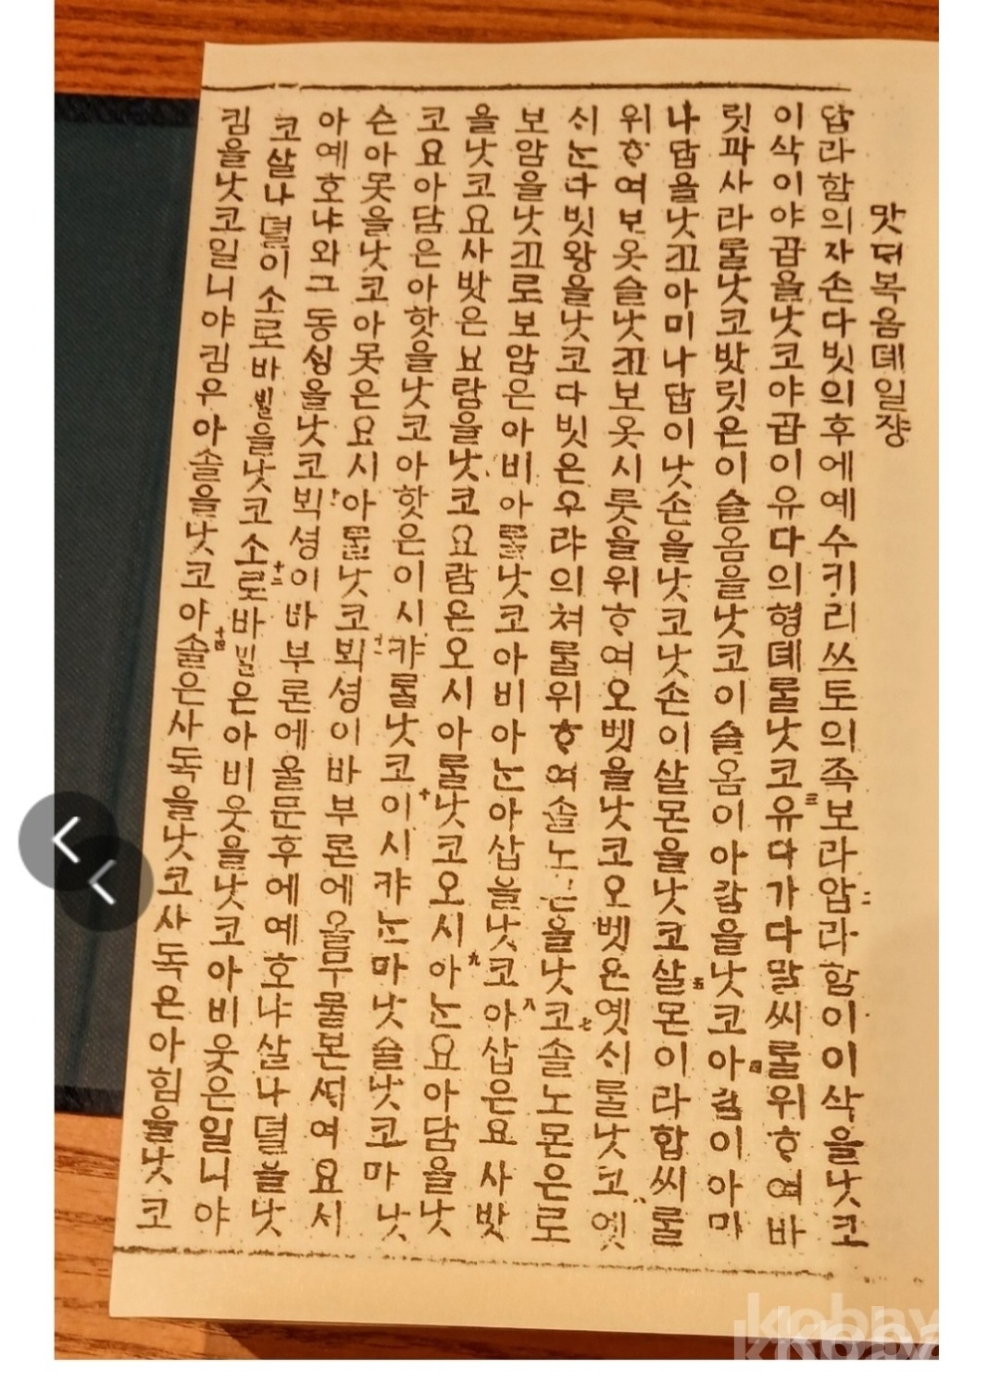 맛뎌복음뎨일쟝
압라함의자손다빗의후에예수키리쓰토의족보라二암라함이이삭을낫코
이삭이야곱을낫코야곱이유다의형뎨룰낫코三유다가다말씨룰위ᄒᆞ여바
릿과사라룰낫코밧릿은이슬옴을낫코이슬옴이아람을낫코四아람이아미
나답을낫고아미나답이낫손을낫코낫손이살몬을낫코五살몬이라합씨룰
위ᄒᆞ여보옷슬낫고보옷시룻을위ᄒᆞ여오벳을낫코오벳은옛시룰낫코六옛
시는다빗왕을낫코다빗은우랴의쳐룰위ᄒᆞ여솔노몬을낫코七솔노몬은로
보암을낫고로보암은아비아룰낫코아비아는아삽을낫코八아삽은요사밧
을낫코요사밧은요람을낫코요람은오시아룰낫코九오시아는요아담을낫
코요아담은아핫을낫코아핫은이시캬룰낫코十이시캬는마낫슬낫코마낫
슨아못을낫코아못은요시아룰낫코十一뵉셩이바부론에올무물본셔여요시
아예호냐와그동싱을낫코十二뵉셩이바부론에올문후에예호냐살나뎔을낫
코살나뎔이소로바빌을낫코十三소로바빌은아비웃을낫코아비웃은일니야
킴을낫코일니야킴은아솔을낫코十四아솔은사독을낫코사독은아힘을낫코
kobay